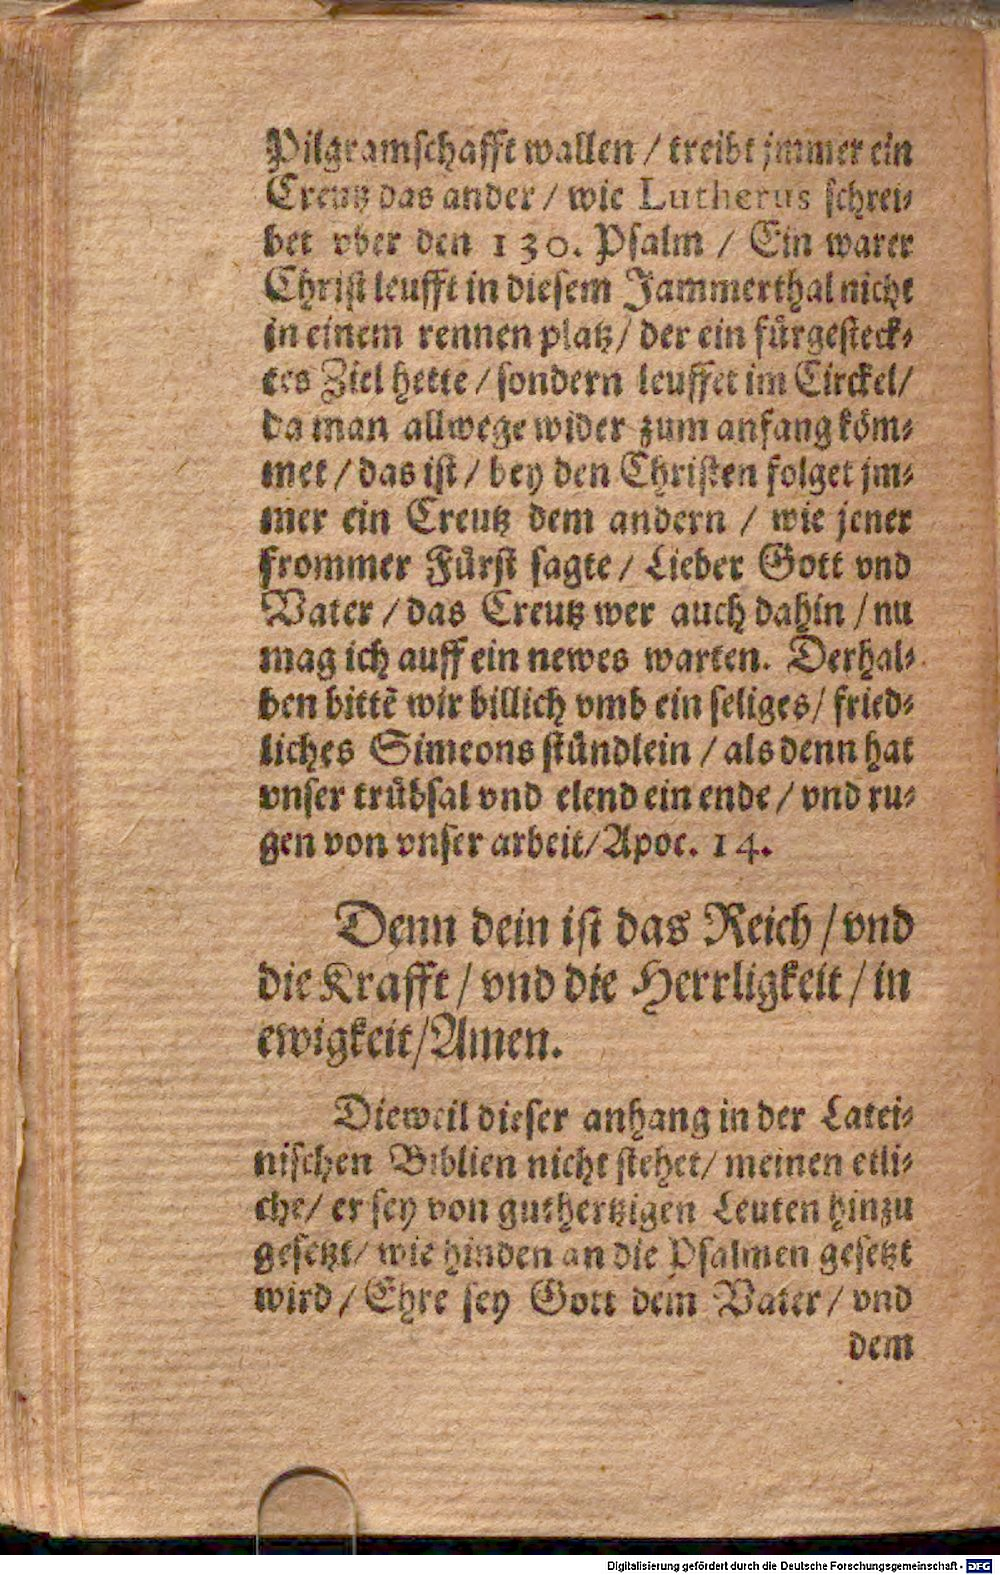 Pilgramschafft wallen / treibt jmmer ein
Creutz das ander / wie Lutherus schrei⸗
bet vber den 130. Psalm / Ein warer
Christ leufft in diesem Jammerthal nicht
in einem rennen platz / der ein fuͤrgesteck⸗
tes Ziel hette / sondern leuffet im Circkel /
da man allwege wider zum anfang koͤm⸗
met / das ist / bey den Christen folget jm⸗
mer ein Creutz dem andern / wie jener
frommer Fuͤrst sagte / Lieber Gott vnd
Vater / das Creutz wer auch dahin / nu
mag ich auff ein newes warten. Derhal⸗
ben bittē wir billich vmb ein seliges / fried⸗
liches Simeons stuͤndlein / als denn hat
vnser truͤbsal vnd elend ein ende / vnd ru⸗
gen von vnser arbeit / Apoc. 14.
Denn dein ist das Reich / vnd
die Krafft / vnd die Herrligkeit / in
ewigkeit / Amen.
Dieweil dieser anhang in der Latei⸗
nischen Biblien nicht stehet / meinen etli⸗
che / er sey von guthertzigen Leuten hinzu
gesetzt / wie hinden an die Psalmen gesetzt
wird / Ehre sey Gott dem Vater / vnd
dem
Digitalisierung gefördert durch die Deutsche Forschungsgemeinschaft - DFG